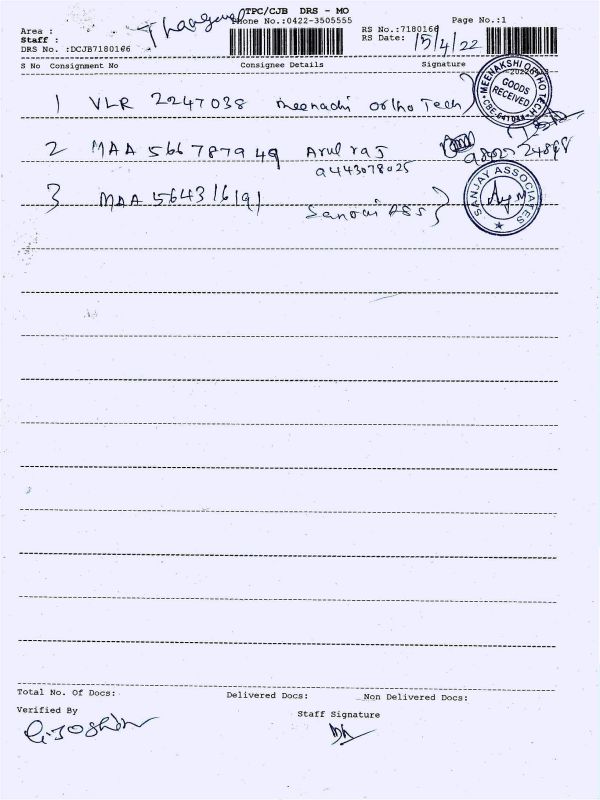 TPC/CJB DRS - MO
Phone No.:0422-3505555
Page No.:1
Area :
Staff :
DRS No. :DCJB7180166
RS No.:7180166
RS Date: 15/4/22
S No Consignment No Consignee Details Signature
1 VLR 2247038 Meenachi Ortho Tech
MEENAKSHI ORTHO TECH
GOODS RECEIVED
2 MAA 566787949 Arul raj
9443078025
3 MAA 564316191
SANJAY ASSOCIATES
Total No. Of Docs: Delivered Docs: Non Delivered Docs:
Verified By
Staff Signature